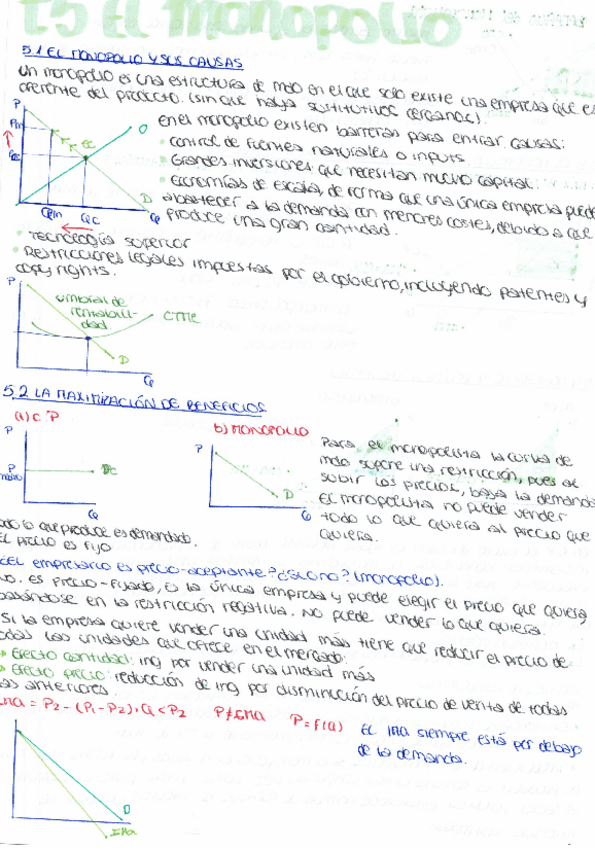 T5 EL MONOPOLIO
5.1 EL MONOPOLIO Y SUS CAUSAS
Un monopolio es una estructura de mdo en el que solo existe una empresa que es
oferente del producto. (sin que haya sustitutivos cercanos)
En el monopolio existen barreras para entrar. Causas:
• Control de fuentes naturales o inputs
• Grandes inversiones que necesitan mucho capital.
• Economías de escala, de forma que una única empresa puede
abastecer a la demanda con menores costes, debido a que
produce una gran cantidad.
P
Pm
Pc
EC
O
D
Qm
QC
Q
• Tecnología superior
• Restricciones legales impuestas por el gobierno, incluyendo patentes y
copy rights.
P
umbral de
rentabili-
dad
CTMe
D
Q
5.2 LA MAXIMIZACIÓN DE BENEFICIOS
(a) C P
b) MONOPOLIO
P
P
Q
P
D
Q
Para el monopolista la curva de
mdo supone una restricción, pues al
subir los precios, baja la demanda
El monopolista no puede vender
todo lo que quiera al precio que
quiera.
todo lo que produce es demandado.
EL precio es fijo
¿EL empresario es precio-aceptante? ¿Sí o no? (monopolio).
No. es precio-fijado, es la única empresa y puede elegir el precio que quiera,
basándose en la restricción negativa. No puede vender lo que quiera.
Si la empresa quiere vender una unidad más tiene que reducir el precio de
todas las unidades que ofrece en el mercado:
→ Efecto cantidad: ing por vender una unidad más
→ Efecto precio: reducción de ing por disminución del precio de venta de todas
las anteriores
IMa = P2 - (P1 - P2) · Q < P2 P ≠ IMa P = f(Q)
EL IMa siempre está por debajo
de la demanda.
D
IMa